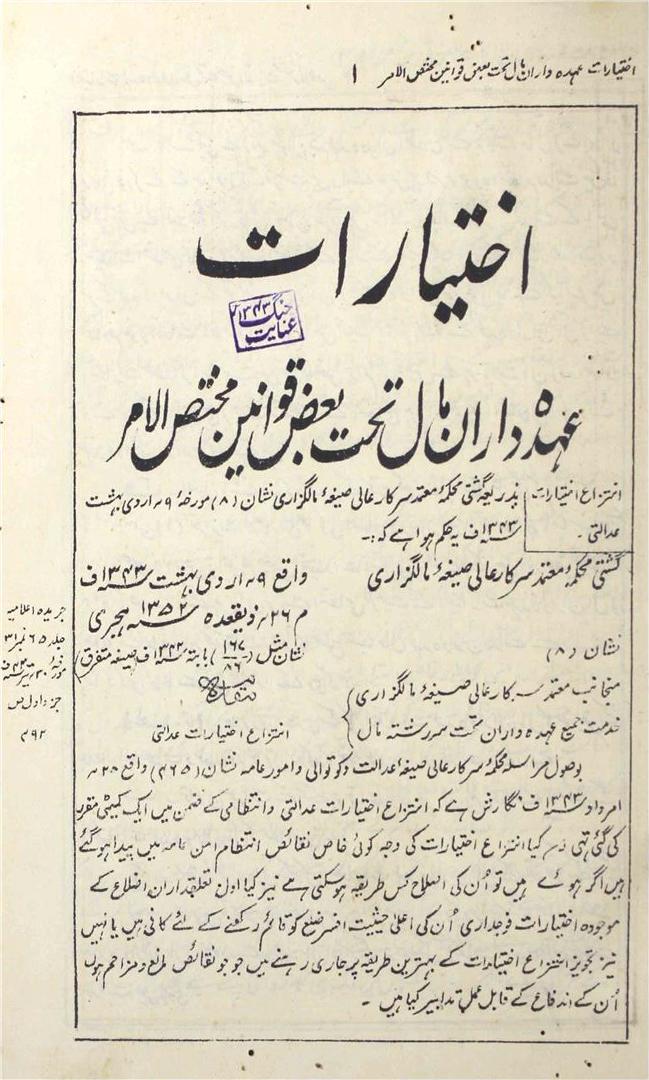 اختیارات عہدہ داران مال تحت بعض قوانین مختص الامر ۱
اختیارات
عہدہ داران مال تحت بعض قوانین مختص الامر
انتزاع اختیارات
عدالتی ۔
بذریعہ گشتی محکمۂ معتمد سرکار عالی صیغۂ مالگزاری نشان (۸) مورخۂ ۹ ار دی بہشت
سنہ ۱۳۴۳ ف یہ حکم ہوا ہے کہ :۔
گشتی محکمۂ معتمد سرکار عالی صیغۂ مالگزاری
واقع ۹ ار دی بہشت سنہ ۱۳۴۳ ف
م ۲۶ ذیقعدہ سنہ ۱۳۵۲ ہجری
نشان (۸)
نشان مثل (۱۶۷/۸۹) بابتہ سنہ ۱۳۴۲ ف صیغہ متفرق
منجانب معتمد سرکار عالی صیغۂ مالگزاری
خدمت جمیع عہدہ داران تحت سررشتہ مال
انتزاع اختیارات عدالتی
بوصول مراسلہ محکمۂ سرکار عالی صیغۂ عدالت و کوتوالی و امور عامہ نشان (۴۶۵) واقع ۲۸
امرداد سنہ ۱۳۴۳ ف نگارش ہے کہ انتزاع اختیارات عدالتی و انتظامی کے ضمن میں ایک کمیٹی مقرر
کی گئی تھی کیا انتزاع اختیارات کی وجہ کوئی خاص نقائص انتظام امن عامہ میں پیدا ہو گئے
ہیں اگر ہوئے ہیں تو اُن کی اصلاح کس طریقہ ہو سکتی ہے نیز کیا اول تعلقداران اضلاع کے
موجودہ اختیارات فوجداری اُن کی اعلیٰ حیثیت افسر ضلع کو قائم رکھنے کے لئے کافی ہیں یا نہیں
نیز تجویز انتزاع اختیارات کے بہترین طریقہ پر جاری رہنے میں جو جو نقائص مانع و مزاحم ہوں
اُن کے اندفاع کے قابل عمل تدابیر کیا ہیں ۔
جریدہ اعلامیہ
جلد ۶۵ نمبر ۳۱
جزو اول ص
جنگ ۱۳۴۳
عنایت